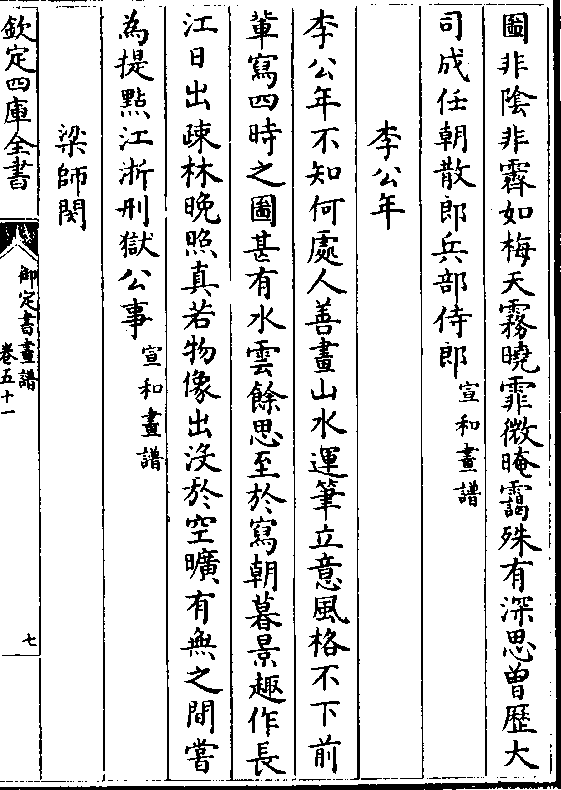 圖非陰非霽如梅天霧曉霏微晻靄殊有深思曽歷大
司成任朝散郎兵部侍郎宣和畫譜
李公年
李公年不知何處人善畫山水運筆立意風格不下前
軰寫四時之圖甚有水雲餘思至於寫朝暮景趣作長
江日出疎林晚照真若物像出沒於空曠有無之間嘗
為提㸃江浙刑獄公事宣和畫譜
梁師閔
欽定四庫全書
御定書畫譜
卷五十一
七